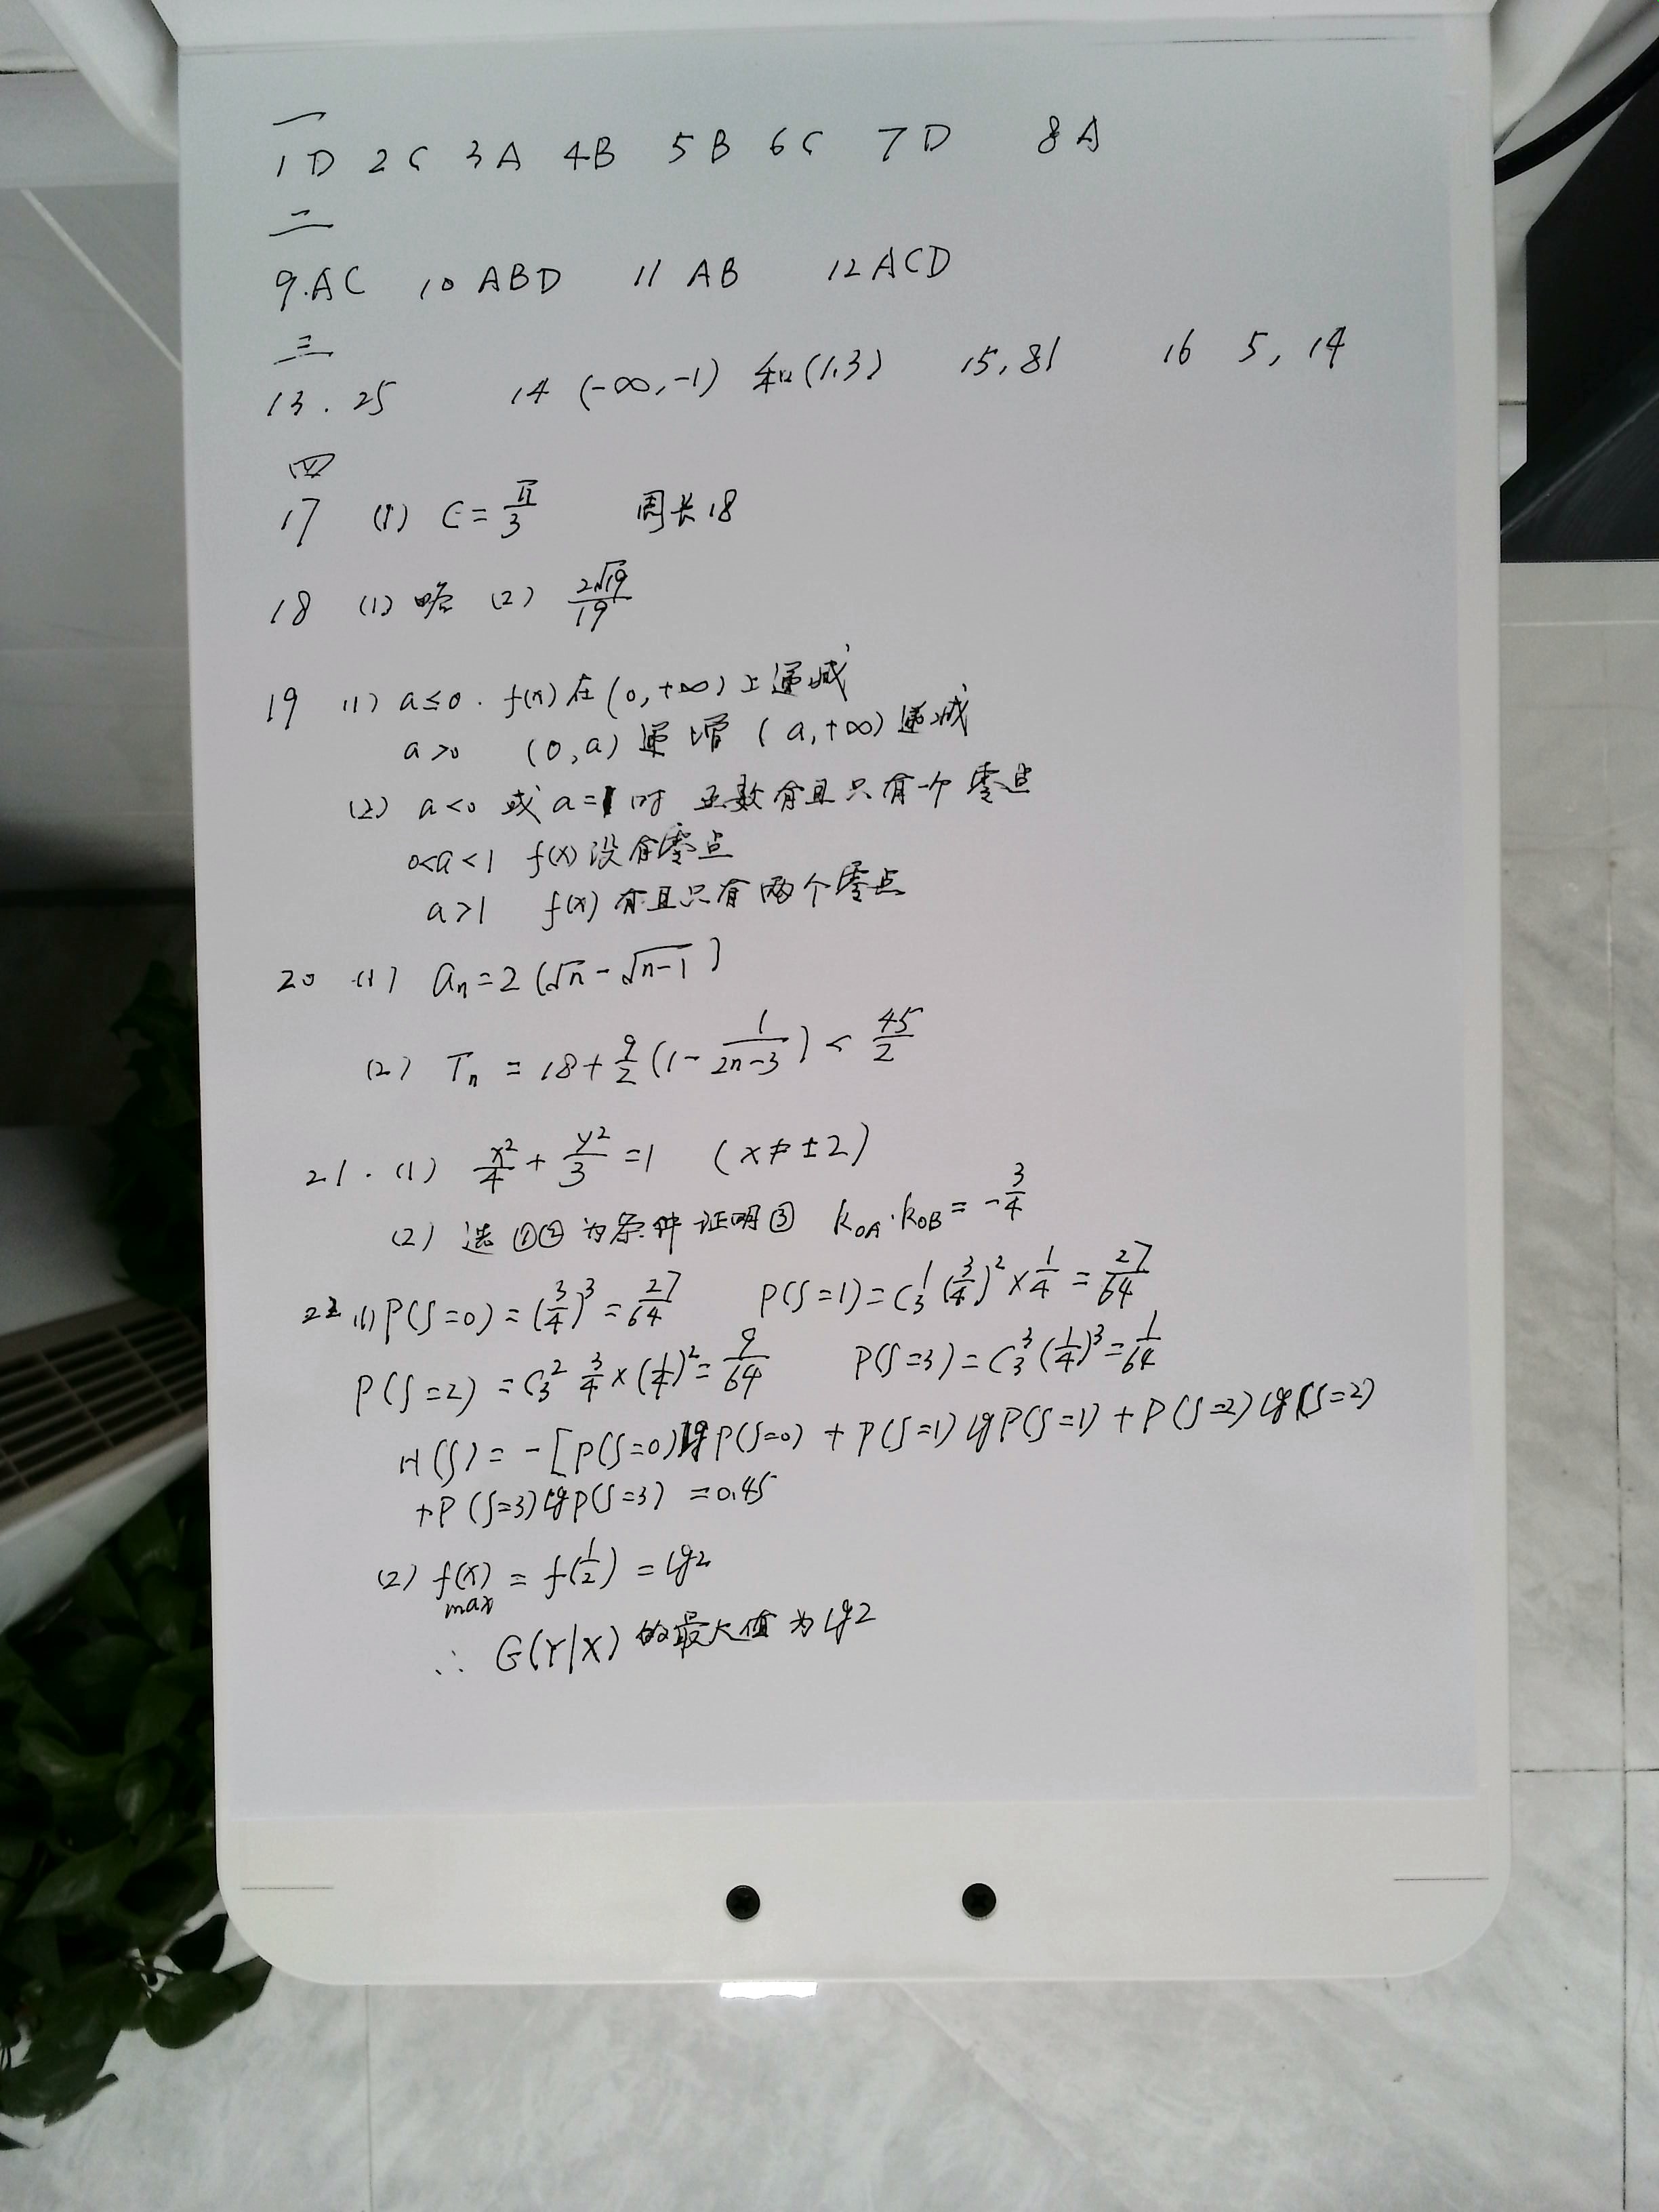 一
1 D 2 C 3 A 4 B 5 B 6 C 7 D 8 A
二
9. AC 10 ABD 11 AB 12 ACD
三
13. 25 14 (-∞, -1) 和 (1, 3) 15, 81 16 5, 14
四
17 (1) C = π/3 周长18
18 (1) 略 (2) 2√19/19
19 (1) a≤0. f(x)在(0,+∞)上递减
a>0 (0,a) 递增 (a,+∞) 递减
(2) a<0 或 a=1时 函数有且只有一个零点
0<a<1 f(x)没有零点
a>1 f(x)有且只有两个零点
20 (1) aₙ=2(√n-√(n-1))
(2) Tₙ = 18+9/2(1-1/(2n-3)) < 45/2
21. (1) x²/4 + y²/3 = 1 (x≠±2)
(2) 选①②为条件证明③ k_OA·k_OB = -3/4
22 (1) P(ξ=0) = (3/4)³ = 27/64 P(ξ=1) = C₃¹(3/4)²×1/4 = 27/64
P(ξ=2) = C₃² 3/4×(1/4)² = 9/64 P(ξ=3) = C₃³(1/4)³ = 1/64
H(ξ) = -[P(ξ=0)lgP(ξ=0) + P(ξ=1)lgP(ξ=1) + P(ξ=2)lg(ξ=2)
+P(ξ=3)lgP(ξ=3) = 0.45
(2) f(x)max = f(1/2) = lg2
∴ G(Y|X) 的最大值为lg2